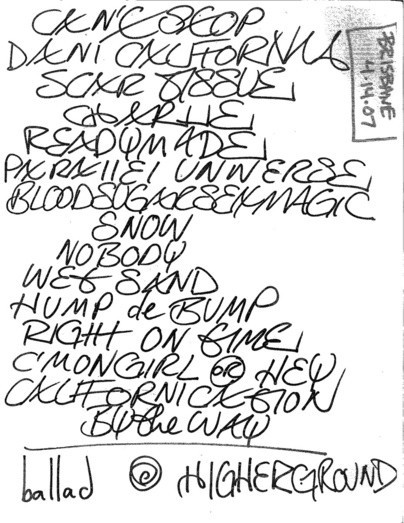 CAN'T STOP
DANI CALIFORNIA
SCAR TISSUE
CHARLIE
READYMADE
PARALLEL UNIVERSE
BLOODSUGARSEXMAGIC
SNOW
NOBODY
WET SAND
HUMP de BUMP
RIGHT ON TIME
C'MONGIRL OR HEY
CALIFORNICATION
BY the WAY
ballad @ HIGHERGROUND
BRISBANE
4.14.07